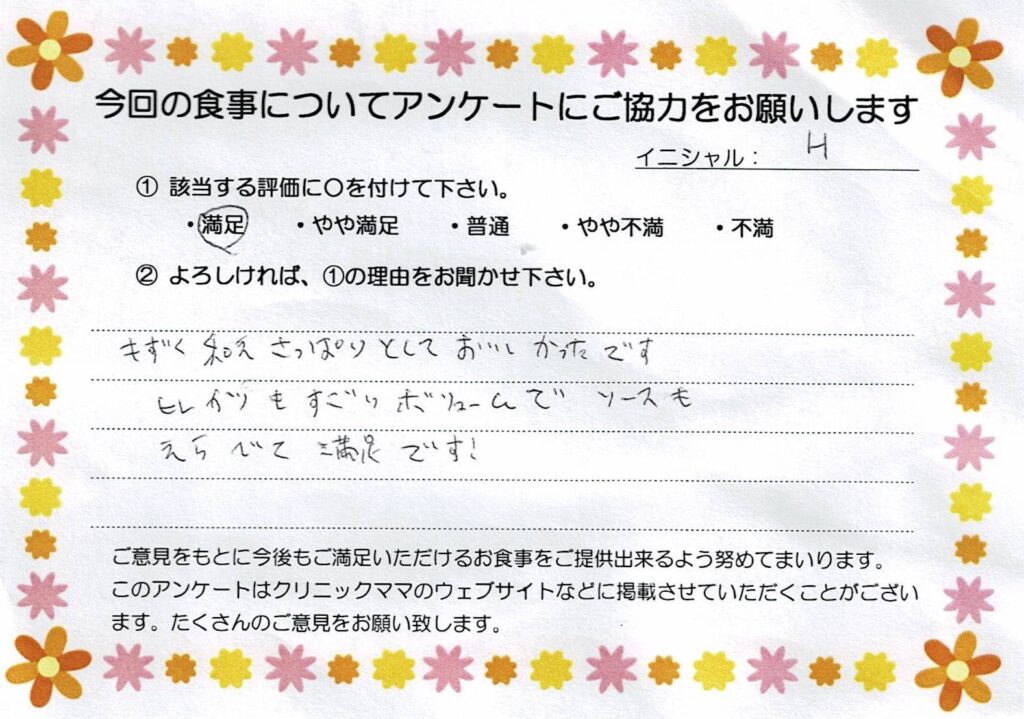 今回の食事についてアンケートにご協力をお願いします
イニシャル： H
① 該当する評価に〇を付けて下さい。
・満足 ・やや満足 ・普通 ・やや不満 ・不満
② よろしければ、①の理由をお聞かせ下さい。
もずく和え さっぱりとして おいしかったです
ヒレカツも すごい ボリュームで ソースも
えらべて 満足です!
ご意見をもとに今後もご満足いただけるお食事をご提供出来るよう努めてまいります。
このアンケートはクリニックママのウェブサイトなどに掲載させていただくことがござい
ます。たくさんのご意見をお願い致します。